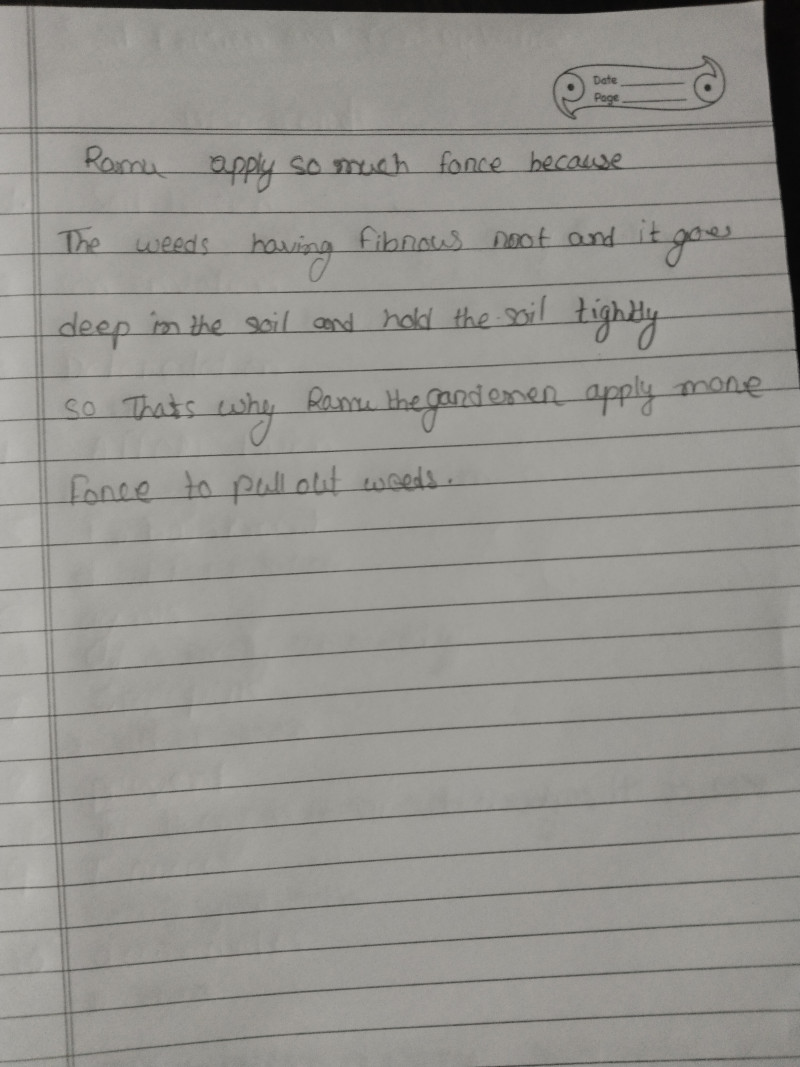 Date
Page
Ramu apply so much force because
The weeds having fibrous root and it goes
deep in the soil and hold the soil tightly
so Thats why Ramu the gardener apply more
Force to pull out weeds.